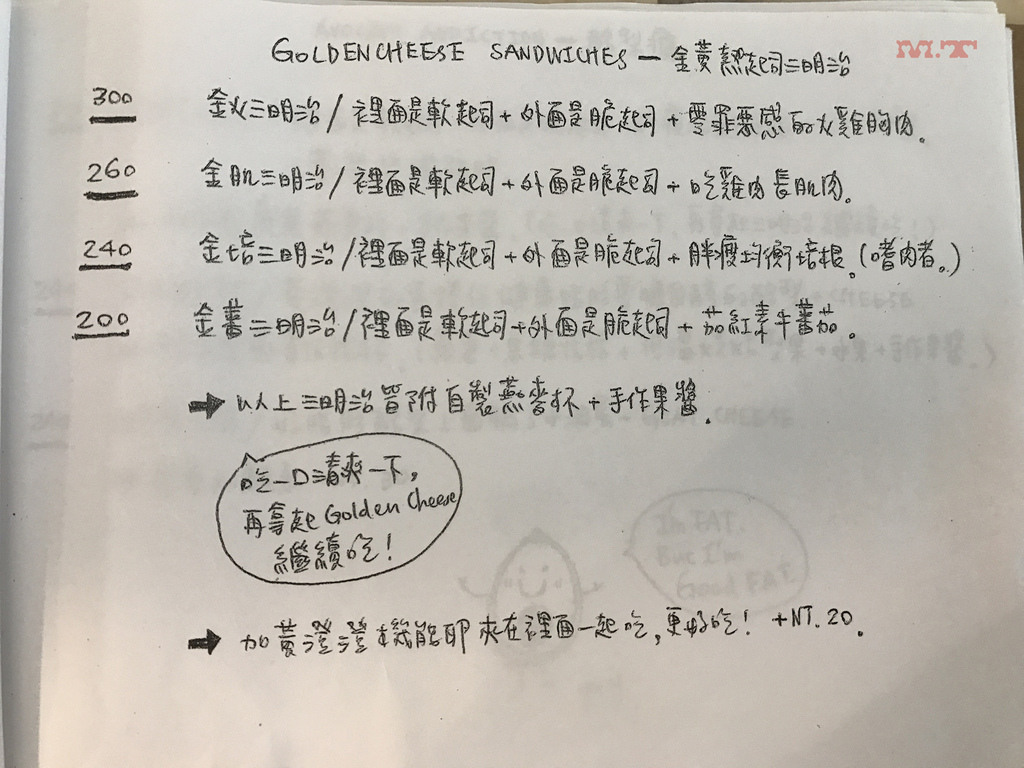 M.T
GOLDEN CHEESE SANDWICHES — 金黃熱起司三明治
300 金火三明治/裡面是軟起司+外面是脆起司+零罪惡感的火雞胸肉。
260 金肌三明治/裡面是軟起司+外面是脆起司+吃雞肉長肌肉。
240 金培三明治/裡面是軟起司+外面是脆起司+胖瘦均衡培根。(嗜肉者。)
200 金蕃三明治/裡面是軟起司+外面是脆起司+茄紅素牛蕃茄。
➡ 以上三明治皆附自製燕麥杯+手作果醬.
吃一口清爽一下,
再拿起 Golden Cheese
繼續吃!
➡ 加黃澄澄機能耶夾在裡面一起吃,更好吃! +NT.20.
I'm FAT.
But I'm
Good FAT